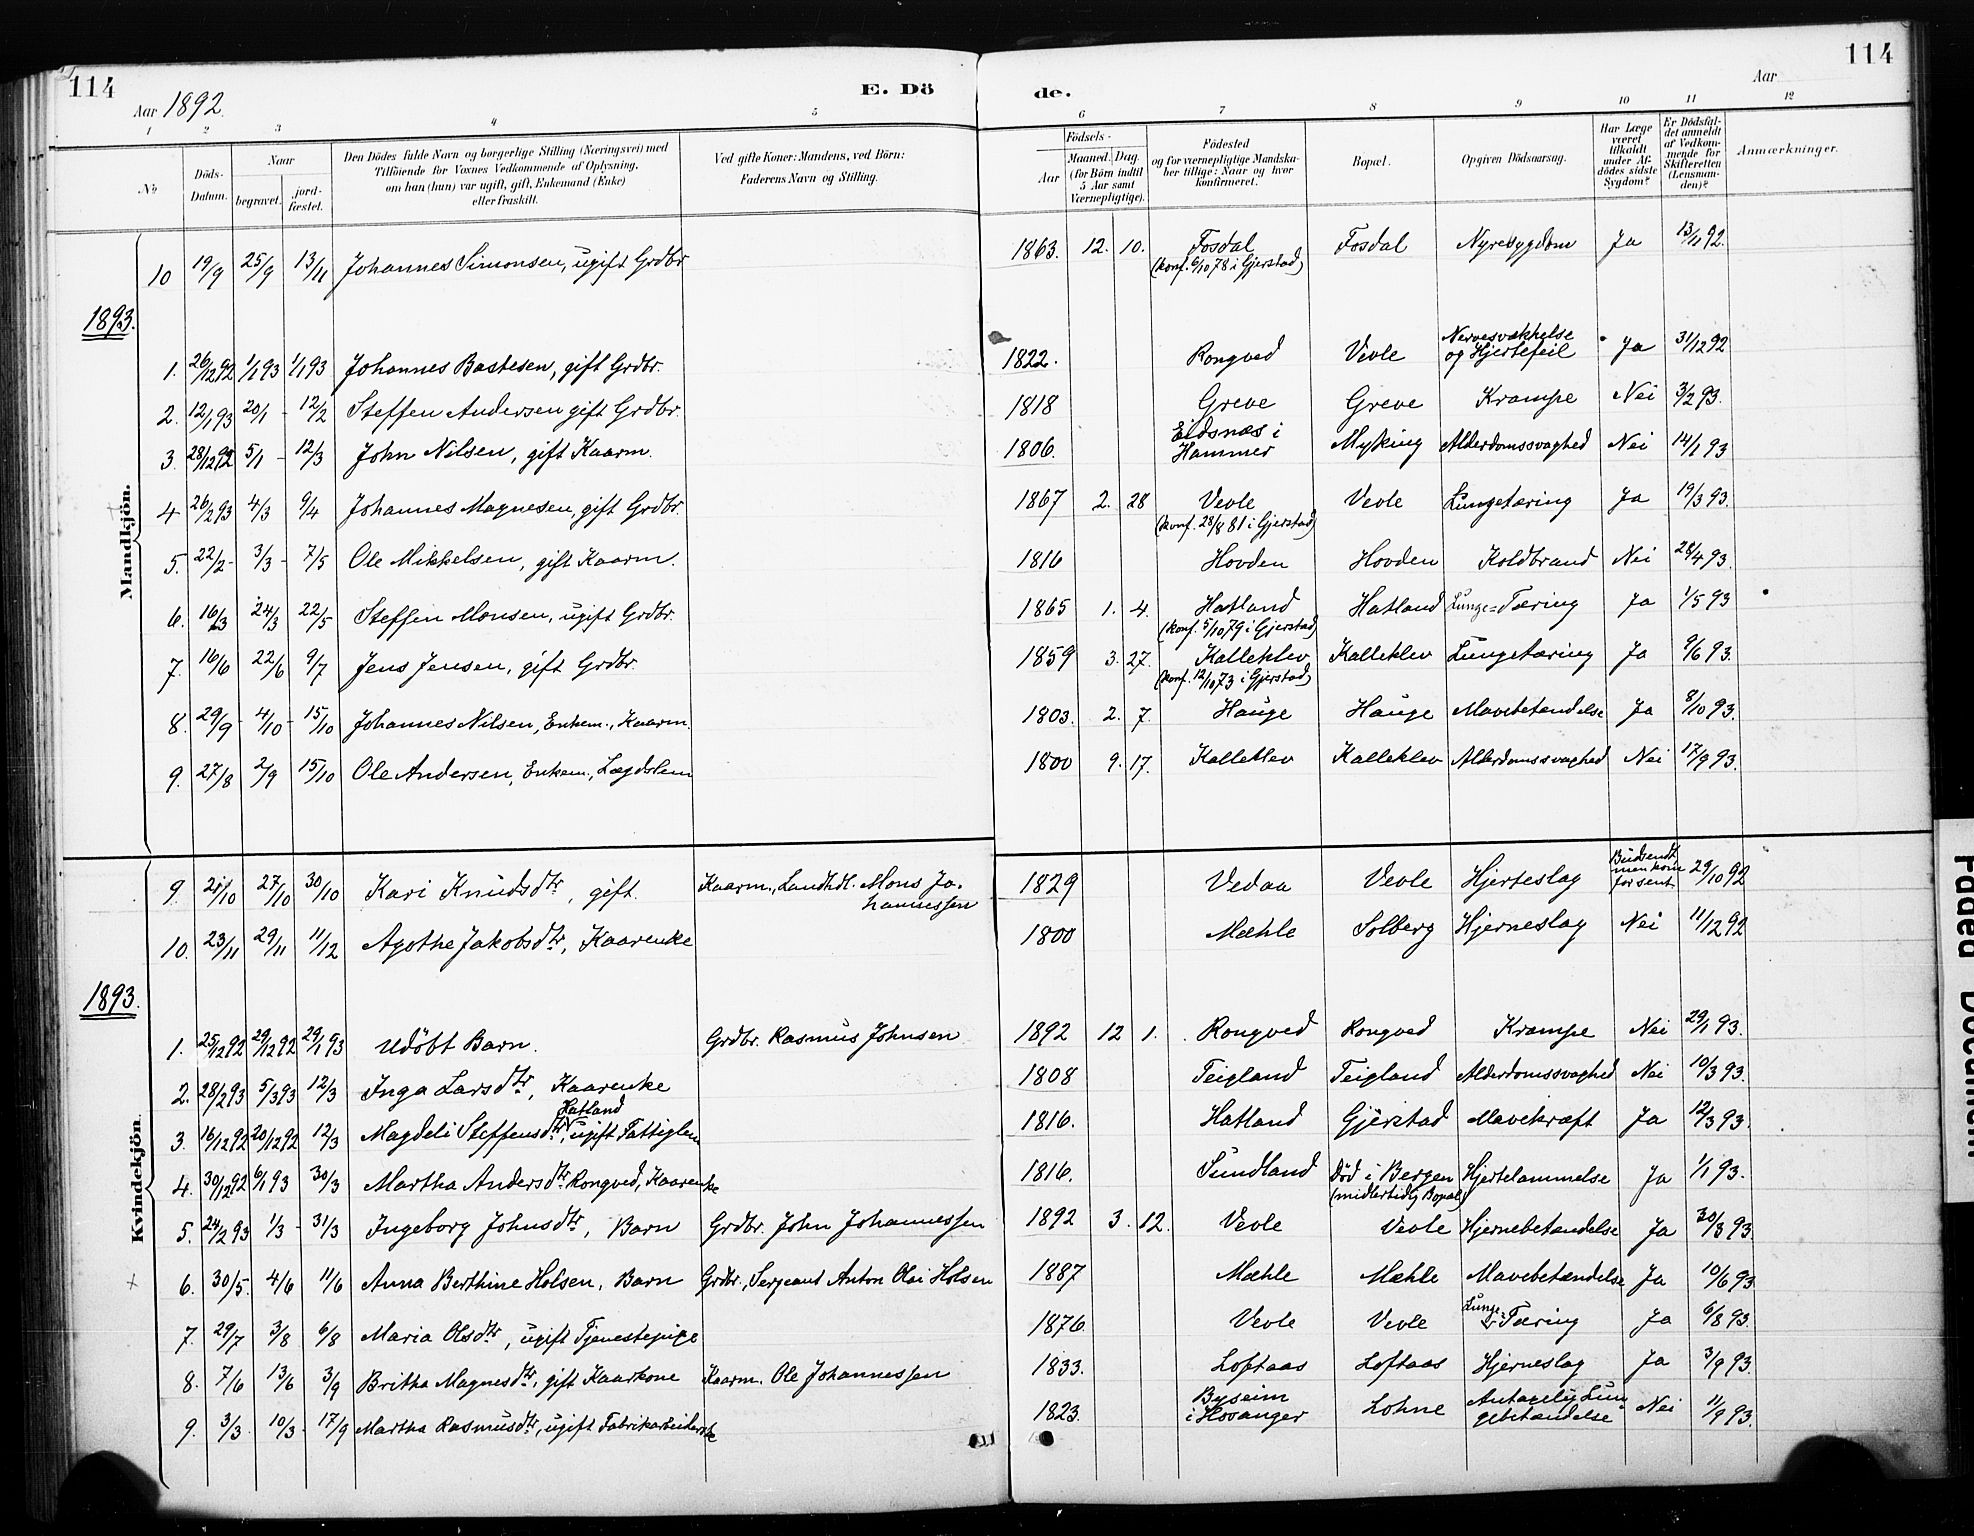 114
Aar 1892.
E. Dö
de.
Aar
114
1 2 3 4 5 6 7 8 9 10 11 12
No
Döds-Datum.
Naar
begravet.
jord-fæstet.
Den Dödes fulde Navn og borgerlige Stilling (Næringsvei) med
Tilföiende for Voxnes Vedkommende af Oplysning,
om han (hun) var ugift, gift, Enkemand (Enke)
eller fraskilt.
Ved gifte Koner: Mandens, ved Börn:
Faderens Navn og Stilling.
Födsels-
Aar
Maaned. Dag.
(for Börn indtil
5 Aar samt
Værnepligtige).
Födested
og for værnepligtige Mandska-
ber tillige: Naar og hvor
konfirmeret.
Bopæl.
Opgiven Dödsaarsag.
Har Læge
været
tilkaldt
under Af-
dödes sidste
Sygdom?
Er Dödsfal-
det anmeldt
af Vedkom-
mende for
Skifteretten
(Lensman-
den)?
Anmærkninger.
Mandkjön.
10 19/9 25/9 13/11 Johannes Simonsen, ugift Grdbr 1863. 12. 10. Fosdal Fosdal Nyresygdom Ja 13/11 92.
(konf. 6/10 78 i Gjerstad)
1893.
1. 26/12 92 1/1 93 1/1 93 Johannes Bastesen, gift Grdbr. 1822. Rongved Vevle Nervesvækkelse og Hjertefeil Ja 31/12 92
2. 12/1 93 20/1 - 12/2 Steffen Andersen gift Grdbr. 1818 Greve Greve Krampe Nei 3/2 93.
3. 28/12 92 5/1 - 12/3 John Nilsen, gift Kaarm. 1806. Eidsnæs i Hammer Myking Alderdomssvaghed Nei 14/1 93
4 26/2 93 4/3 9/4 Johannes Magnesen, gift Grdbr. 1867 2. 28 Vevle Vevle Lungetæring Ja 19/3 93.
(konf. 28/8 81 i Gjerstad)
5. 22/2 - 3/3 - 7/5 Ole Mikkelsen, gift Kaarm. 1816 Hovden Hovden Koldbrand Nei 28/4 93.
6. 16/3 24/3 22/5 Steffen Monsen, ugift Grdbr. 1865 1. 4. Hatland Hatland Lunge=Tæring Ja 1/5 93
(konf. 5/10 79 i Gjerstad)
7. 16/6 22/6 9/7 Jens Jensen, gift Grdbr. 1859 3. 27. Kalleklev Kalleklev Lungetæring Ja 9/6 93.
(konf. 12/10 73 i Gjerstad)
8. 29/9 - 4/10 - 15/10 Johannes Nilsen, Enkem., Kaarm. 1803. 2. 7. Hauge Hauge Mavebetændelse Ja 8/10 93.
9. 27/8 2/9 15/10 Ole Andersen, Enkem., Lægdslem 1800 9. 17. Kalleklev Kalleklev Alderdomssvaghed Nei 17/9 93.
Kvindekjön.
9. 21/10 27/10 30/10 Kari Knudsdtr, gift. Kaarm., Landhdl. Mons Jo-hannessen 1829 Vedaa Vevle Hjerteslag Budsendt men kom for sent 29/10 92
10. 23/11 29/11 11/12 Agothe Jakobsdtr, Kaarenke 1800 Mæhle Solberg Hjerneslag Nei 11/12 92
1893.
1. 25/12 92 29/12 92 29/1 93 Udöbt Barn. Grdbr. Rasmus Johnsen 1892 12 1. Rongved Rongved Krampe Nei 29/1 93.
2. 28/2 93 5/3 93 12/3 Inga Larsdtr, Kaarenke 1808 Teigland Teigland Alderdomssvaghed Nei 10/3 93.
Hatland
3. 16/12 92 20/12 92 12/3 Magdeli Steffensdtr, ugift Fattiglem 1816. Hatland Gjerstad Mavekræft Ja 12/3 93.
4. 30/12 92 6/1 93 30/3 Martha Andersdtr Rongved, Kaarenke 1816. Sundland Död i Bergen (midlertidig Bopæl) Hjertelammelse Ja 1/1 93.
5. 24/2 93 1/3 - 31/3 Ingeborg Johnsdtr, Barn Grdbr. John Johannessen 1892 3. 12. Vevle Vevle Hjernebetændelse Ja 30/3 93.
6. 30/5. 4/6 11/6 Anna Berthine Holsen, Barn Grdbr., Sergeant Anton Olai Holsen 1887 Mæhle Mæhle Mavebetændelse Ja 10/6 93.
7. 29/7 3/8 6/8 Maria Olsdtr, ugift Tjenestepige 1876. Vevle Vevle Lunge-Tæring Ja 6/8 93.
8. 7/6 13/6 3/9 Britha Magnesdtr, gift Kaarkone Kaarm. Ole Johannessen 1833. Loftaas Loftaas Hjerneslag Ja 3/9 93.
9. 3/3 10/3 - 17/9 Martha Rasmusdtr, ugift Fabrikarbeiderske 1823. Byseim i Hosanger Lohne Antagelig Lun-gebetændelse Nei 11/9 93.
Faded Document